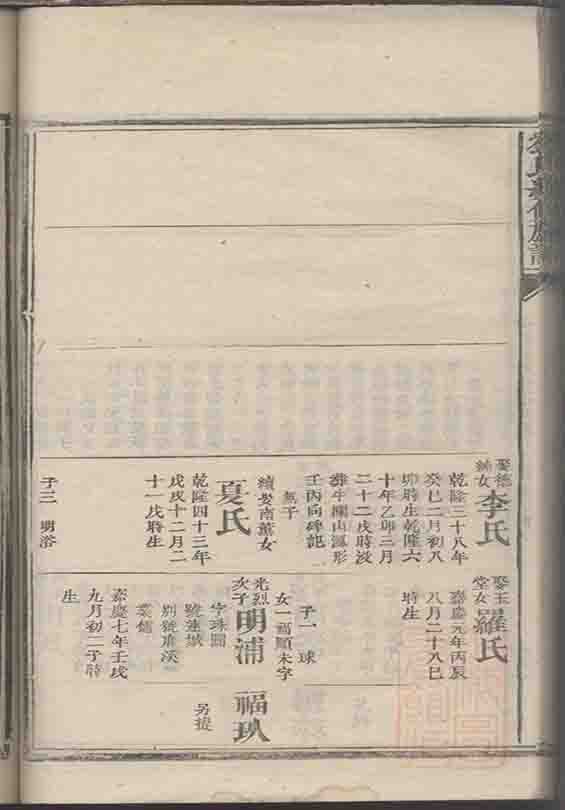 氏
修族譜
娶德
純女
李氏
乾隆三十八年
癸巳二月初八
卯時生乾隆六
十年乙卯三月
二十二戌時歿
葬牛欄山瀛形
壬丙向碑記
無子
續娶南薰女
夏氏
乾隆四十三年
戊戌十二月二
十一戌時生
子三 明浴
娶玉
堂女
羅氏
嘉慶元年丙辰
八月二十八巳
時生
子一 球
女一福順未字
光烈
次子
明浦
字珠圃
號連城
別號眉溪
業儒
嘉慶七年壬戌
九月初二子時
生
福玖
另提